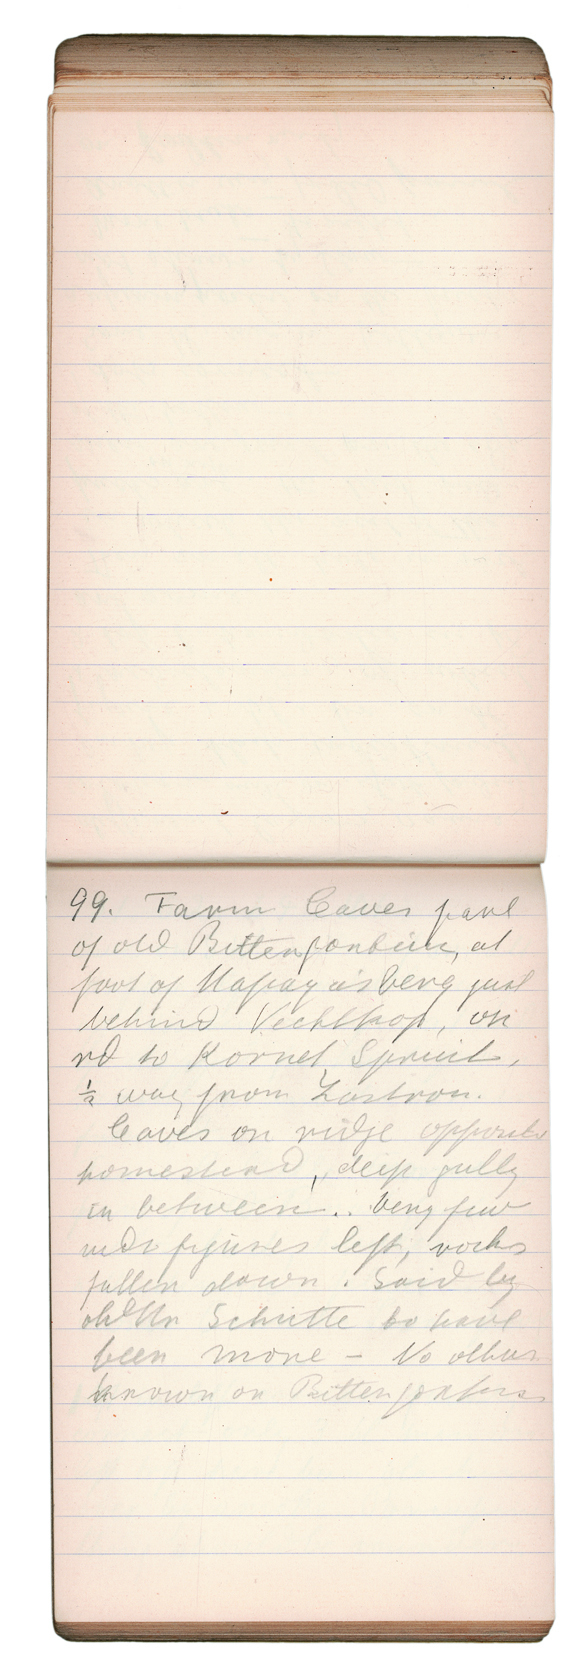 99. Farm Caves part
of old Bittenfontein, at
foot of berg just
behind Vechtkop, on
rd to Kornet Spruit,
½ way from Zastron.
Caves on ridge opposite
homestead, deep gully
in between.. Very few
indr figures left, rocks
fallen down. Said by
old Mr Schutte to have
been more – No others
known on Bittenfontein